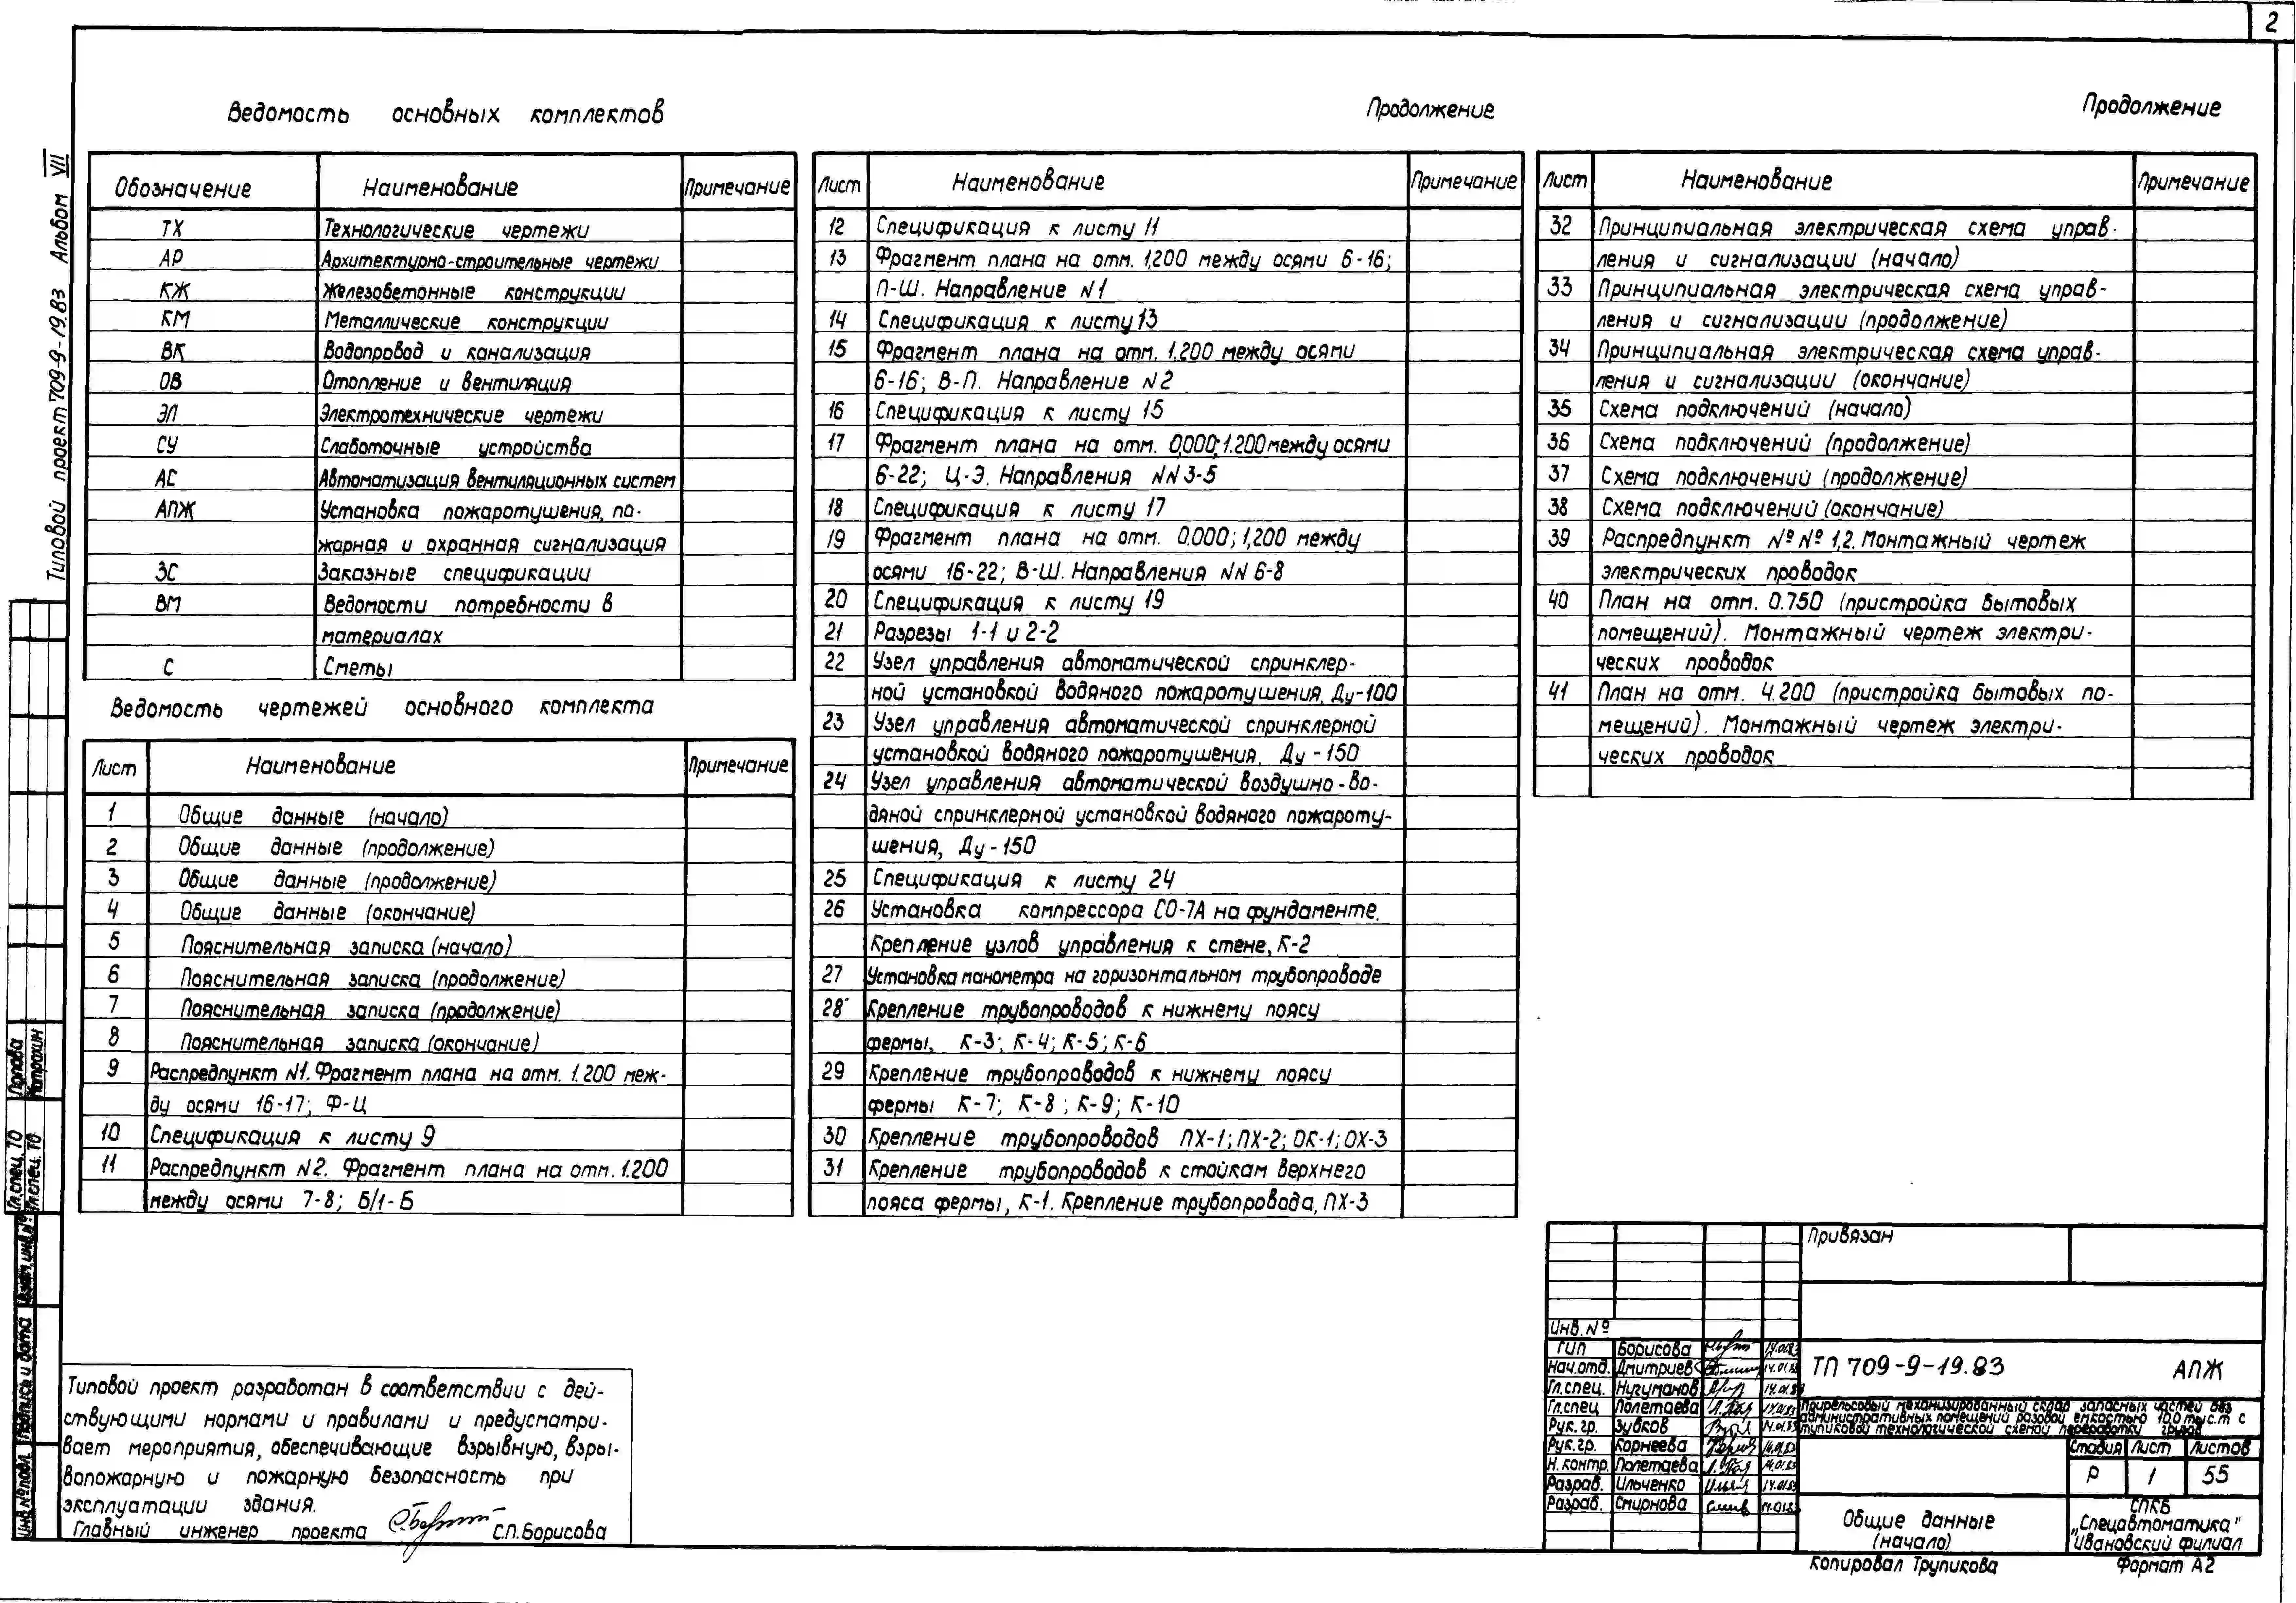 2
Типовой проект 709-9-19.83 Альбом VII
Ведомость основных комплектов
Обозначение Наименование Примечание
ТХ Технологические чертежи
АР Архитектурно-строительные чертежи
КЖ Железобетонные конструкции
КМ Металлические конструкции
ВК Водопровод и канализация
ОВ Отопление и вентиляция
ЭЛ Электротехнические чертежи
СУ Слаботочные устройства
АС Автоматизация вентиляционных систем
АПЖ Установка пожаротушения, по-
жарная и охранная сигнализация
ЗС Заказные спецификации
ВМ Ведомости потребности в
материалах
С Сметы
Ведомость чертежей основного комплекта
Лист Наименование Примечание
1 Общие данные (начало)
2 Общие данные (продолжение)
3 Общие данные (продолжение)
4 Общие данные (окончание)
5 Пояснительная записка (начало)
6 Пояснительная записка (продолжение)
7 Пояснительная записка (продолжение)
8 Пояснительная записка (окончание)
9 Распредпункт N1. Фрагмент плана на отм. 1.200 меж-
ду осями 16-17; Ф-Ц
10 Спецификация к листу 9
11 Распредпункт N2. Фрагмент плана на отм. 1.200
между осями 7-8; Б/1-Б
Продолжение
Лист Наименование Примечание
12 Спецификация к листу 11
13 Фрагмент плана на отм. 1,200 между осями 6-16;
П-Ш. Направление N1
14 Спецификация к листу 13
15 Фрагмент плана на отм. 1.200 между осями
6-16; В-П. Направление N2
16 Спецификация к листу 15
17 Фрагмент плана на отм. 0,000; 1.200 между осями
6-22; Ц-Э. Направления NN 3-5
18 Спецификация к листу 17
19 Фрагмент плана на отм. 0.000; 1,200 между
осями 16-22; В-Ш. Направления NN 6-8
20 Спецификация к листу 19
21 Разрезы 1-1 и 2-2
22 Узел управления автоматической спринклер-
ной установкой водяного пожаротушения, Ду-100
23 Узел управления автоматической спринклерной
установкой водяного пожаротушения, Ду-150
24 Узел управления автоматической воздушно-во-
дяной спринклерной установкой водяного пожароту-
шения, Ду-150
25 Спецификация к листу 24
26 Установка компрессора СО-7А на фундаменте.
Крепление узлов управления к стене, К-2
27 Установка манометра на горизонтальном трубопроводе
28 Крепление трубопроводов к нижнему поясу
фермы, К-3; К-4; К-5; К-6
29 Крепление трубопроводов к нижнему поясу
фермы К-7; К-8; К-9; К-10
30 Крепление трубопроводов ПХ-1; ПХ-2; ОК-1; ОХ-3
31 Крепление трубопроводов к стойкам верхнего
пояса фермы, К-1. Крепление трубопровода, ПХ-3
Продолжение
Лист Наименование Примечание
32 Принципиальная электрическая схема управ-
ления и сигнализации (начало)
33 Принципиальная электрическая схема управ-
ления и сигнализации (продолжение)
34 Принципиальная электрическая схема управ-
ления и сигнализации (окончание)
35 Схема подключений (начало)
36 Схема подключений (продолжение)
37 Схема подключений (продолжение)
38 Схема подключений (окончание)
39 Распредпункт №№ 1,2. Монтажный чертеж
электрических проводок
40 План на отм. 0.750 (пристройка бытовых
помещений). Монтажный чертеж электри-
ческих проводок
41 План на отм. 4.200 (пристройка бытовых по-
мещений). Монтажный чертеж электри-
ческих проводок
Типовой проект разработан в соответствии с дей-
ствующими нормами и правилами и предусматри-
вает мероприятия, обеспечивающие взрывную, взры-
вопожарную и пожарную безопасность при
эксплуатации здания.
Главный инженер проекта С.П. Борисова
Гл. спец. ТО Попова
Гл. спец. ТО
Инв.№подл. Подпись и дата Взам.инв.№
Привязан
Инв.№
ГИП Борисова 14.01.83
Нач.отд. Дмитриев 14.01.83
Гл.спец. Нугуманов 14.01.83
Гл.спец Полетаева 14.01.83
Рук.гр. Зубков 14.01.83
Рук.гр. Корнеева 14.01.83
Н.контр. Полетаева 14.01.83
Разраб. Ильченко 14.01.83
Разраб. Смирнова 14.01.83
ТП 709-9-19.83 АПЖ
Прирельсовый механизированный склад запасных частей без
административных помещений разовой емкостью 10,0 тыс.т с
тупиковой технологической схемой переработки грузов
Стадия Лист Листов
Р 1 55
Общие данные
(начало)
СПКБ
„Спецавтоматика"
Ивановский филиал
Копировал Трупикова Формат А2